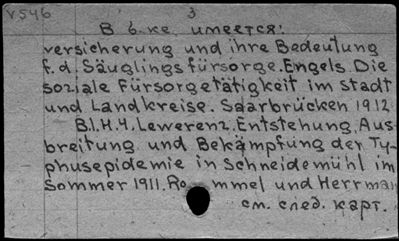 V546 3
В б-ке имеется:
versicherung und ihre Bedeutung
f.d. Säuglingsfürsorge. Engels. Die
soziale Fürsorgetätigkeit im Stadt
und Landkreise. Saarbrücken 1912
B.I.H.4. Lewerenz. Entstehung, Aus-
breitung und Bekämpfung der Ty-
phusepidemie in Schneidemühl im
Sommer 1911. Rommel und Herrman
см. след. карт.